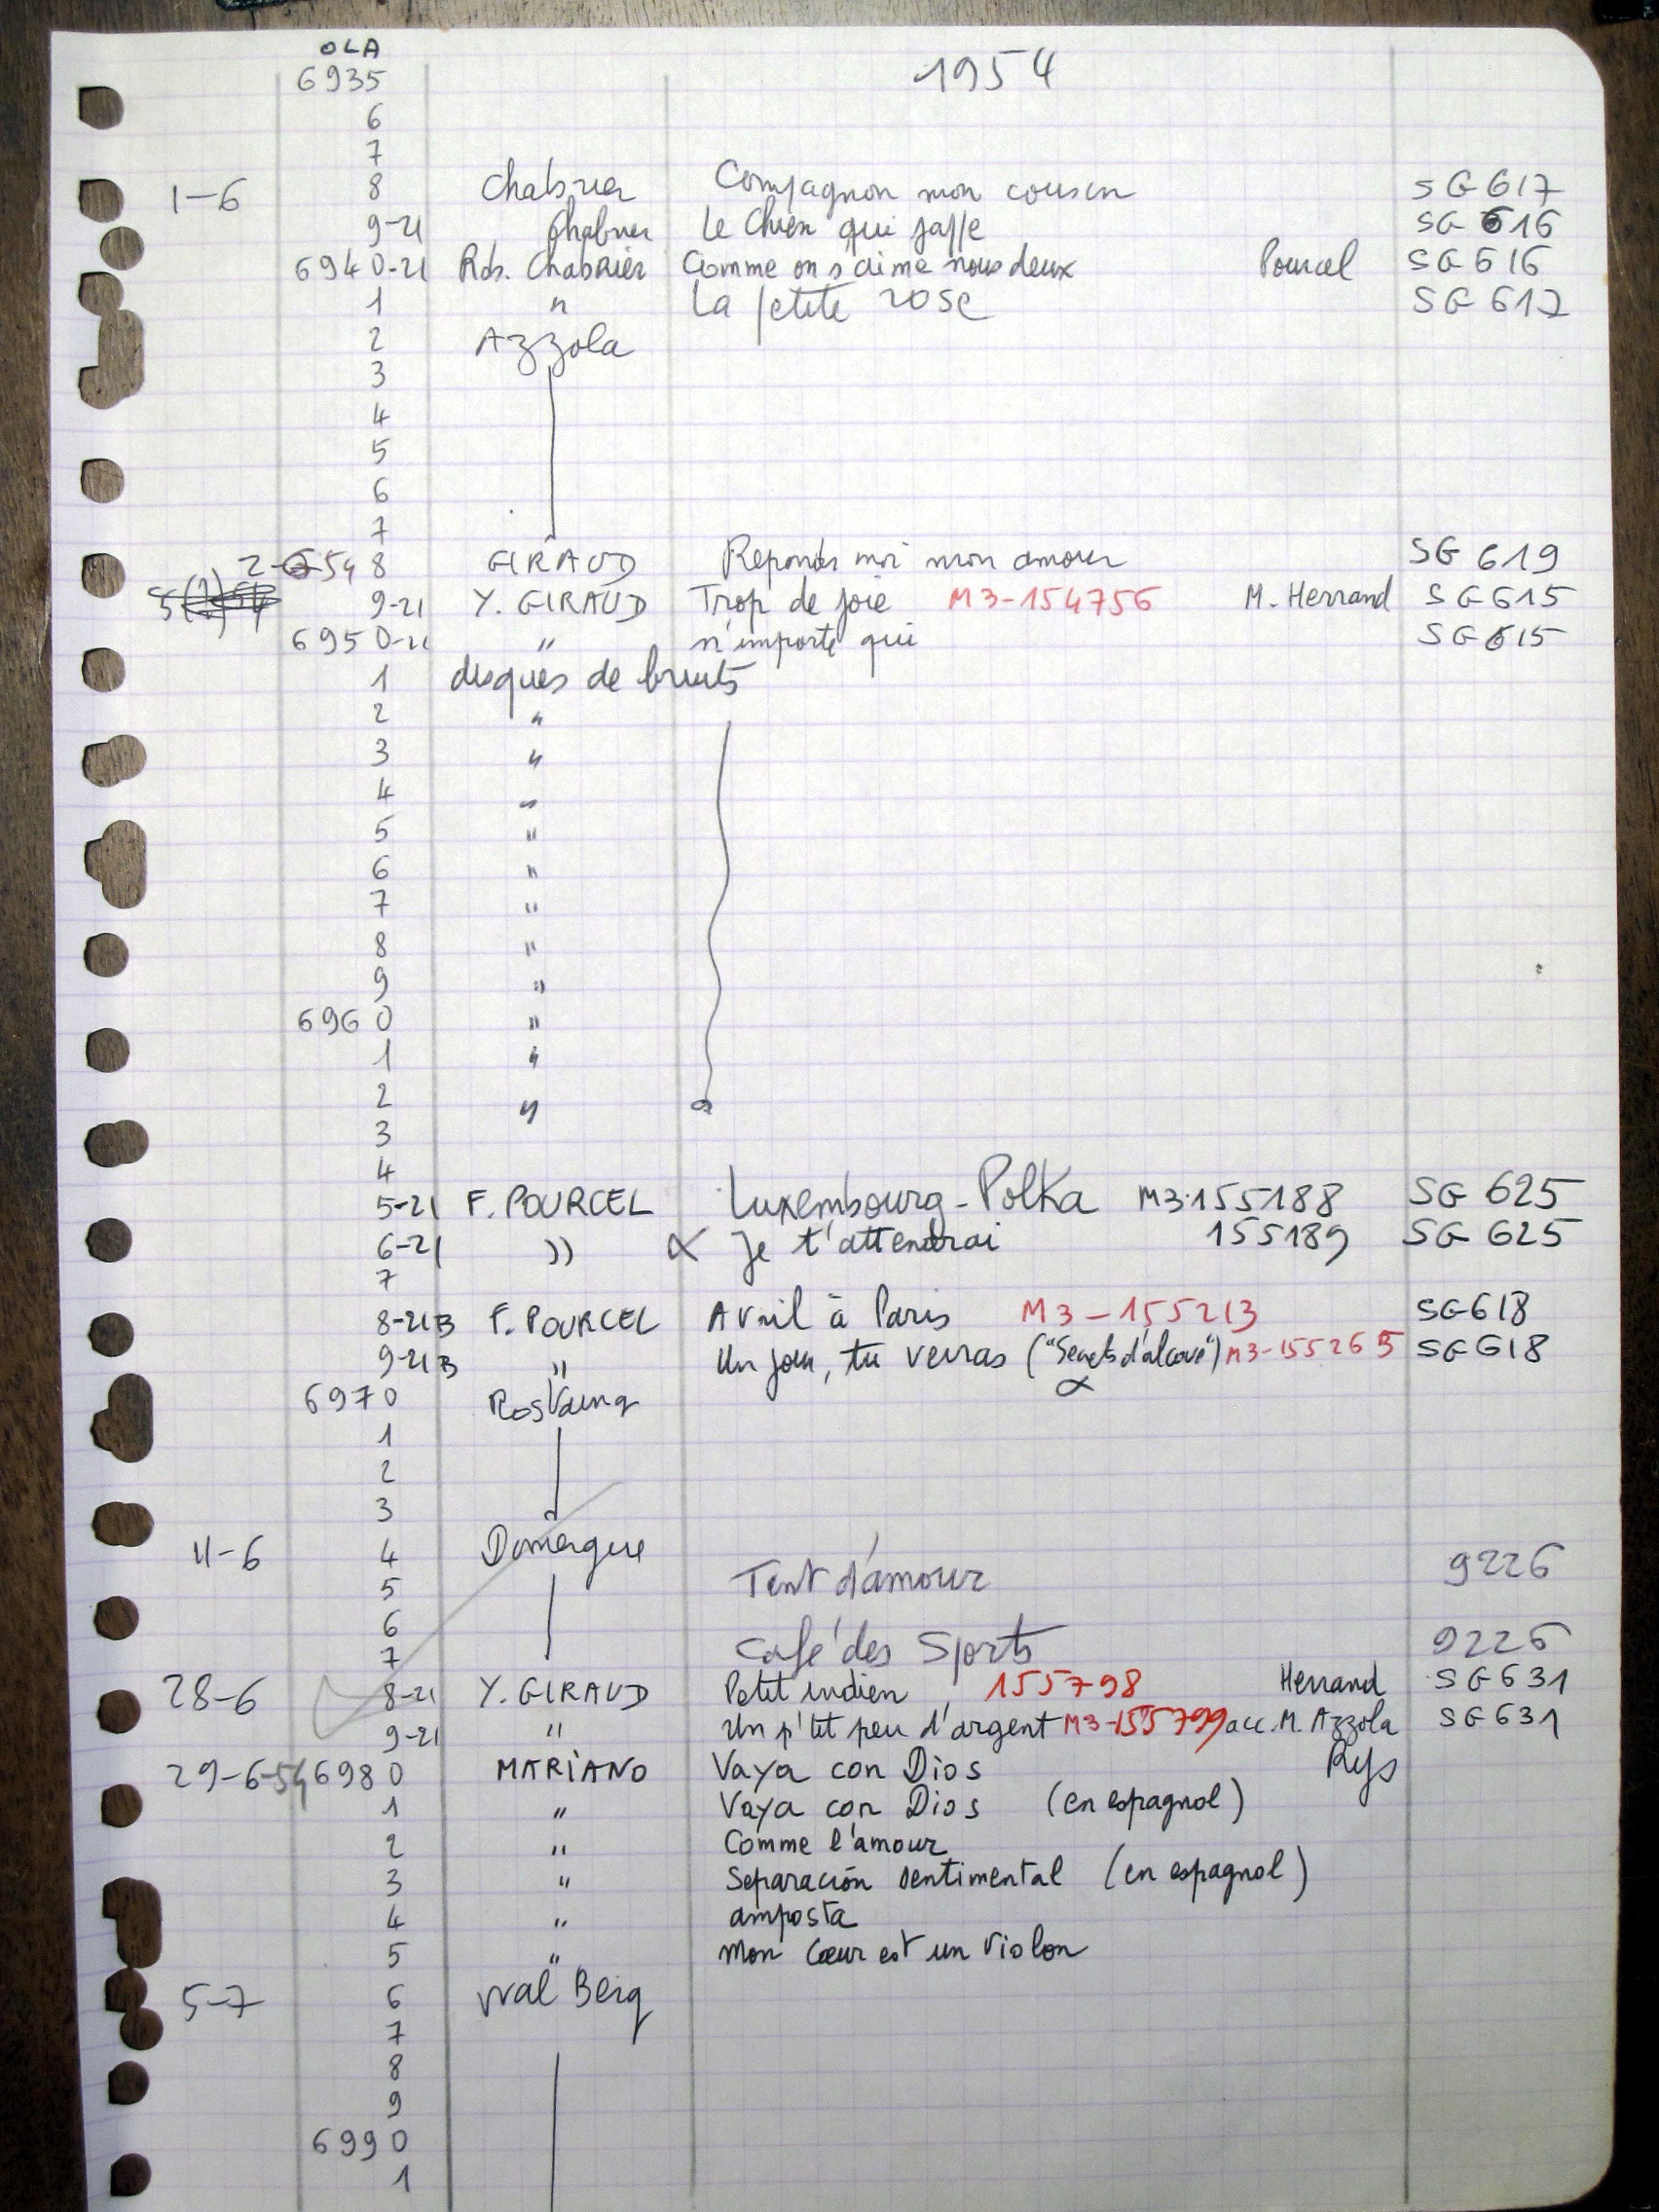 OLA
6935 1954
6
7
1-6 8 Chabrier Compagnon mon cousin SG 617
9-21 Chabrier Le Chien qui jappe SG 616
6940-21 Rds. Chabrier Comme on s'aime nous deux Pourcel SG 616
1 " La petite rose SG 617
2 Azzola
3
4
5
6
7
2-6-54 8 GIRAUD Reponds moi mon amour SG 619
9-21 Y. GIRAUD Trop de joie M3-154756 M. Herrand SG 615
6950-21 " n'importe qui SG 615
1 disques de bruits
2 "
3 "
4 "
5 "
6 "
7 "
8 "
9 "
6960 "
1 "
2 "
3
4
5-21 F. POURCEL Luxembourg-Polka M3-155188 SG 625
6-21 " ∝ Je t'attendrai 155189 SG 625
7
8-21B F. POURCEL Avril à Paris M3-155213 SG 618
9-21B " Un jour, tu verras ("Secrets d'alcove") M3-155265 SG 618
∝
6970 Rostaing
1
2
3
11-6 4 Domergue
5 Tant d'amour 9226
6
7 Café des Sports 9226
28-6 8-21 Y. GIRAUD Petit indien 155798 Herrand SG 631
9-21 " Un p'tit peu d'argent M3-155799 acc. M. Azzola SG 631
29-6-54 6980 MARIANO Vaya con Dios Rys
1 " Vaya con Dios (en espagnol)
2 " Comme l'amour
3 " Separación sentimental (en espagnol)
4 " amposta
5 " mon Cœur est un violon
5-7 6 Wal Berg
7
8
9
6990
1